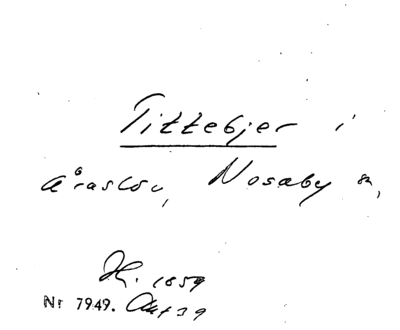 Tittebjer i
Åraslöv, Nosaby sn,
H. 1859
Nr 7949.